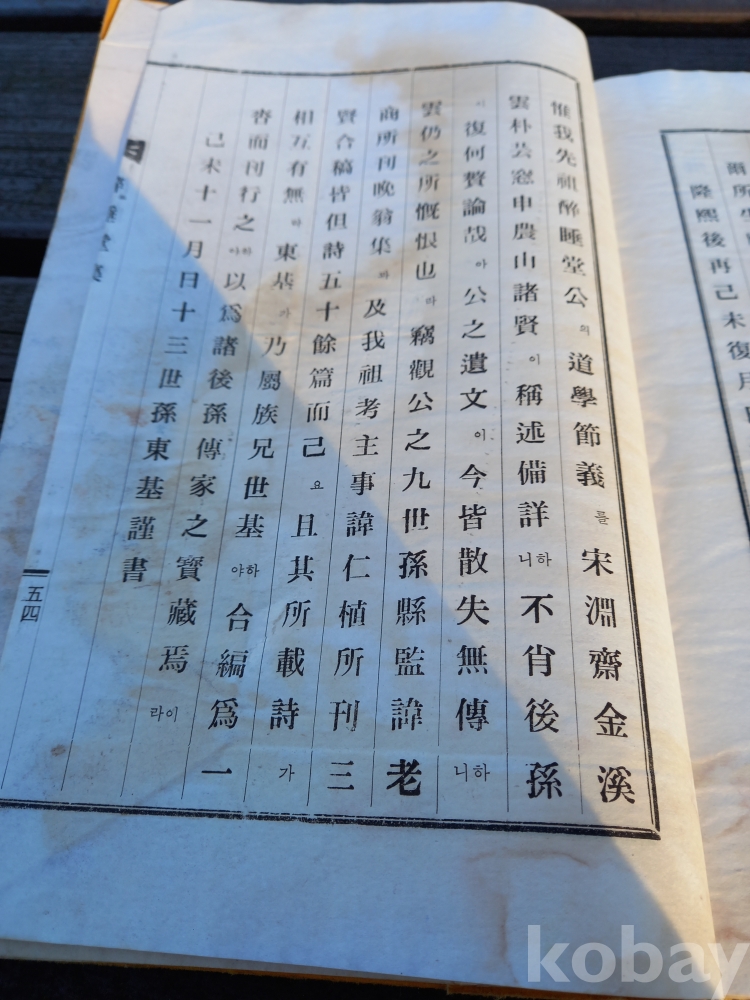 爾所
隆熙後再己未復月
惟我先祖醉睡堂公의道學節義를宋淵齋金溪
雲朴芸窓申農山諸賢이稱述備詳하니不肖後孫
이復何贅論哉아公之遺文이今皆散失無傳하니
雲仍之所慨恨也라竊觀公之九世孫縣監諱老
商所刊晩翁集과及我祖考主事諱仁植所刊三
賢合稿皆但詩五十餘篇而己요且其所載詩가
相互有無하東基라乃屬族兄世基하야合編爲一
沓而刊行之하야以爲諸後孫傳家之寶藏焉이라
己未十一月日十三世孫東基謹書
睡堂集
五四
kobay